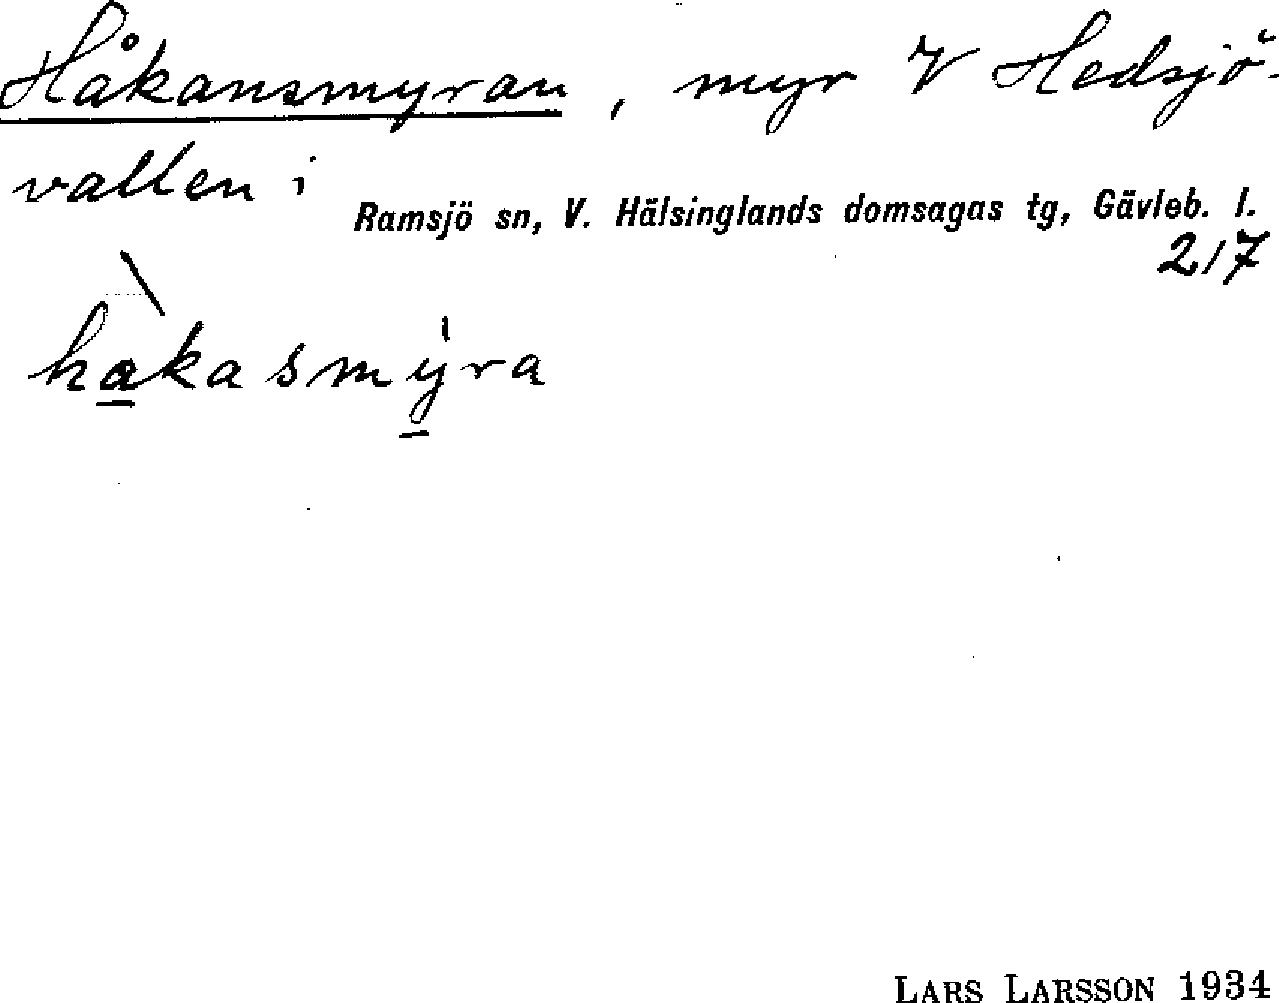 Håkansmyran, myr V Hedsjö-
vallen i Ramsjö sn, V. Hälsinglands domsagas tg, Gävleb. l.
217
hàkasmy̍ra
LARS LARSSON 1934